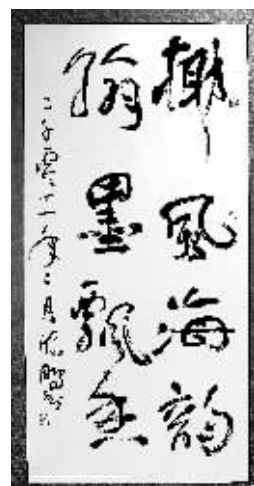 椰風海韵
翰墨飄香
二千零十一年二月